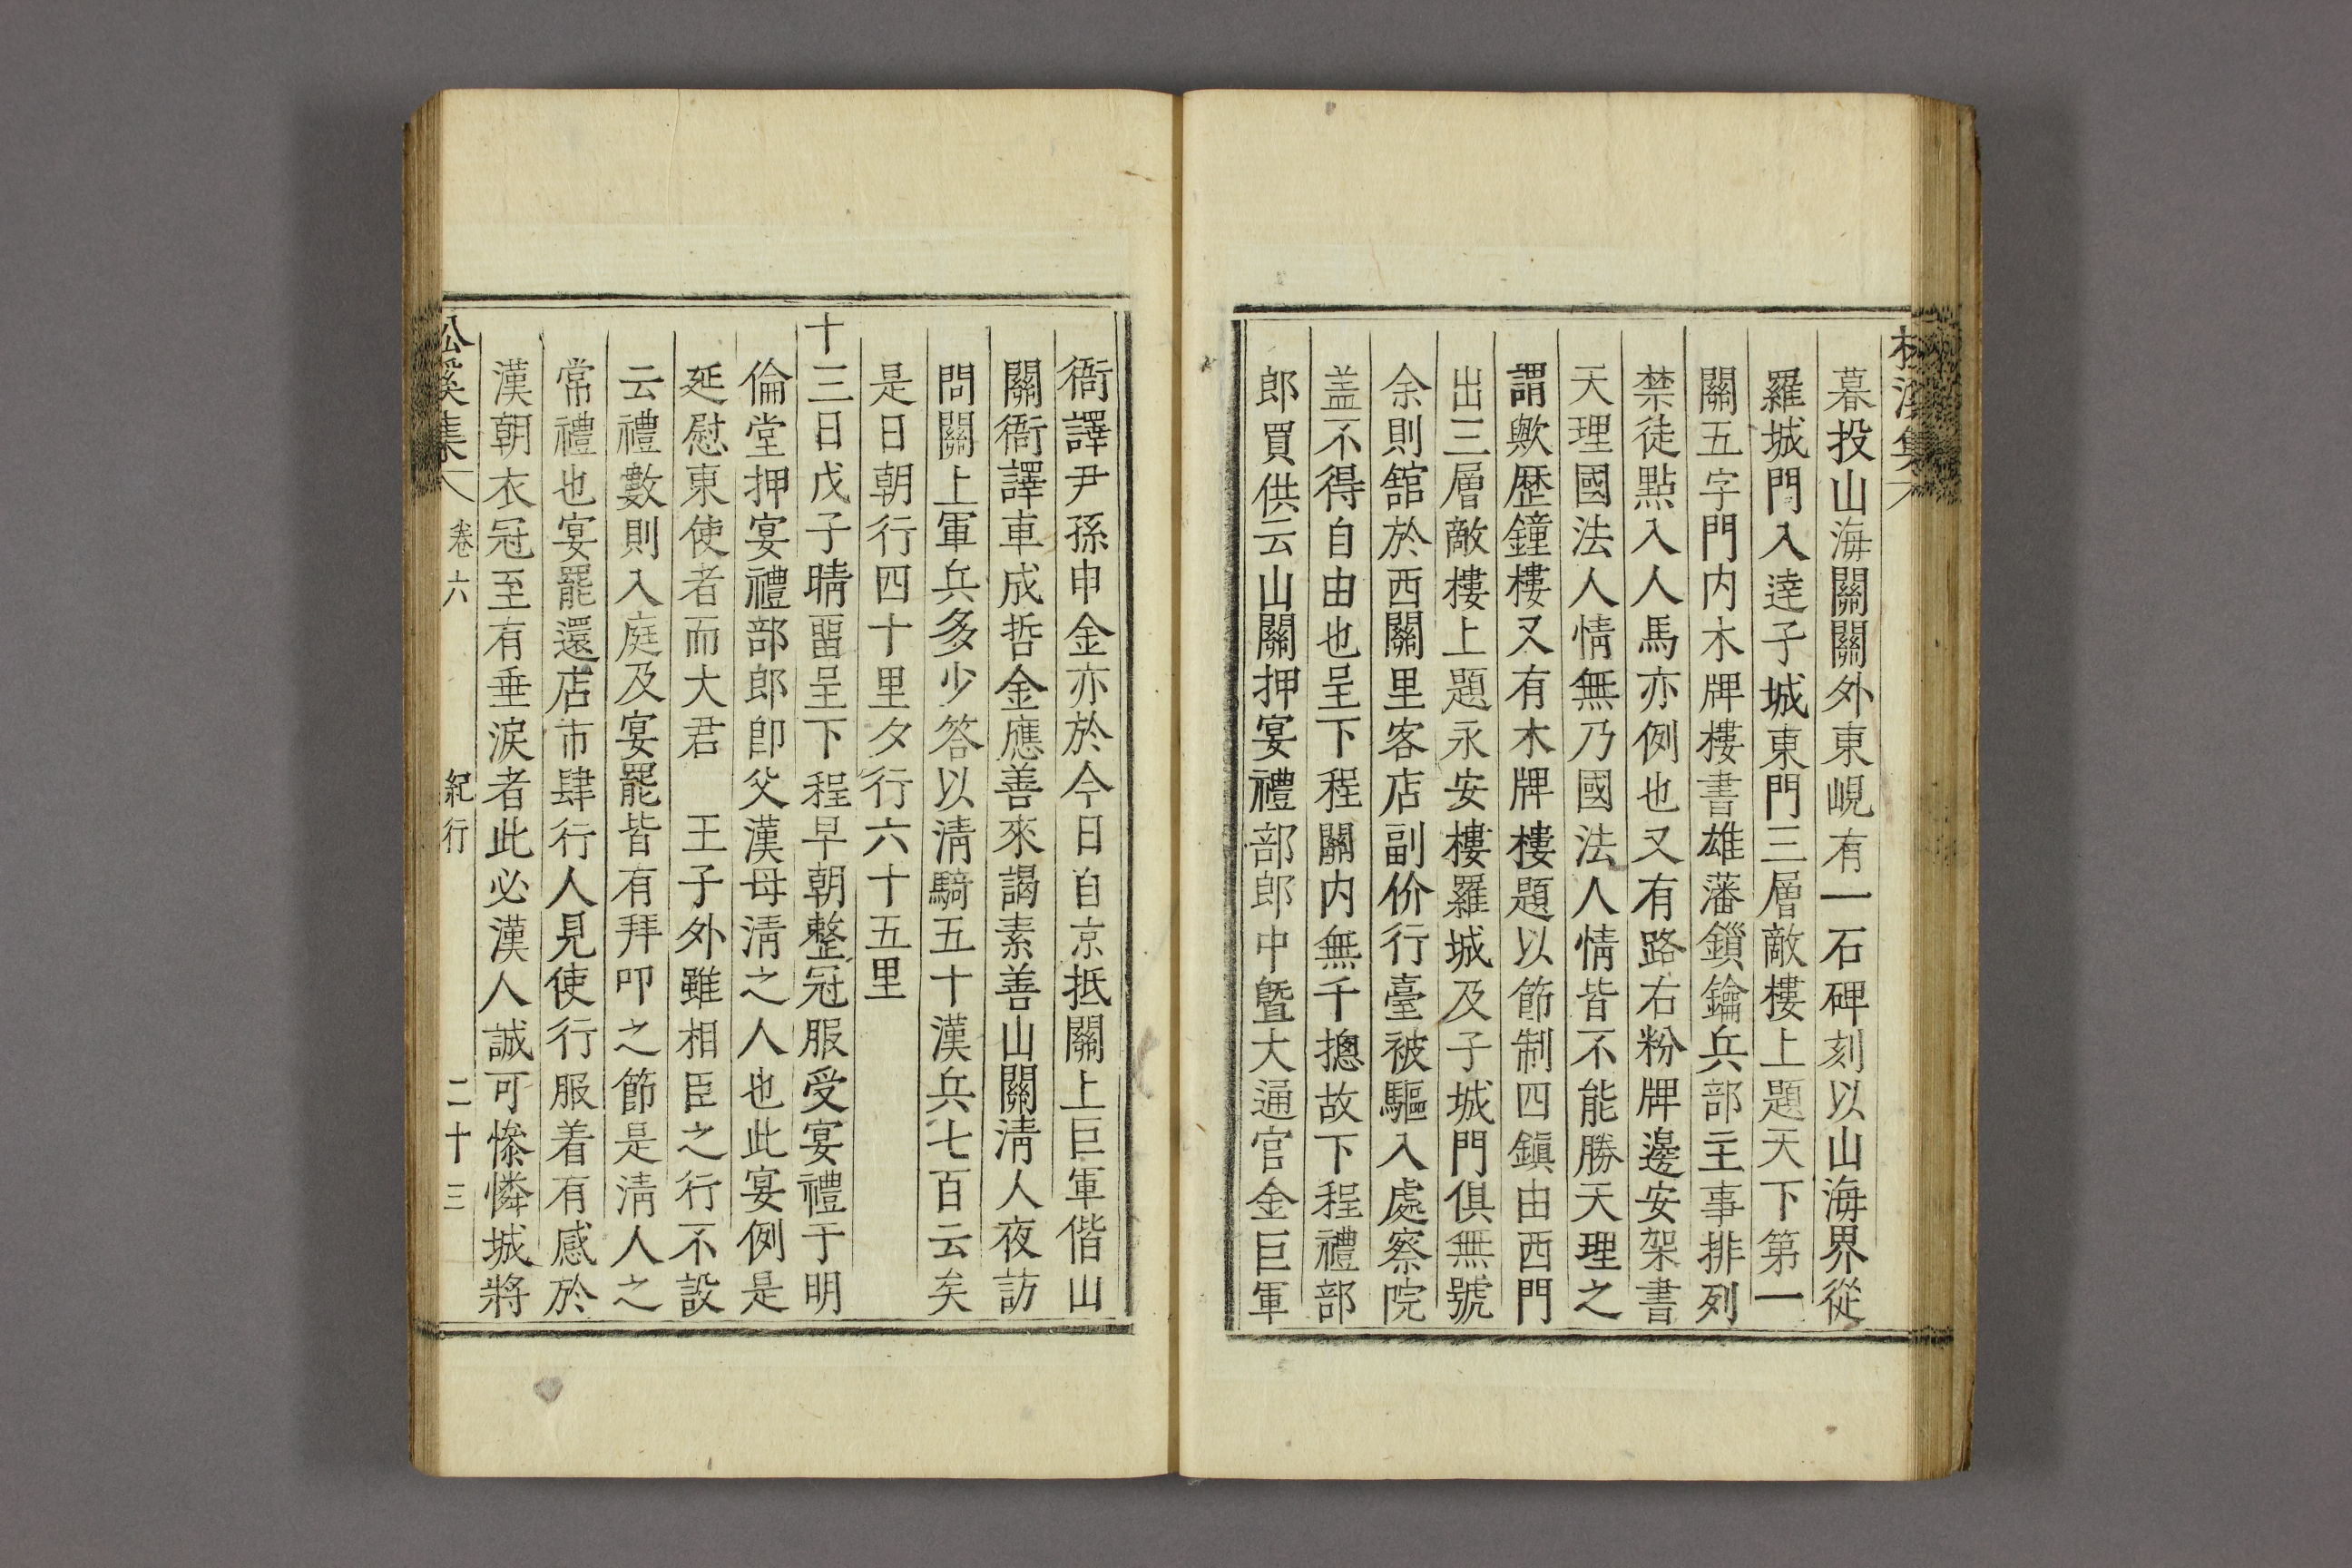 暮投山海關關外東峴有一石碑刻以山海界從
羅城門入逹子城東門三層敵樓上題天下第一
關五字門内木牌樓書雄藩鎖鑰兵部主事排列
禁徒點入人馬亦例也又有路右粉牌邊安架書
天理國法人情無乃國法人情皆不能勝天理之
謂歟歴鐘樓又有木牌樓題以節制四鎭由西門
出三層敵樓上題永安樓羅城及子城門俱無號
余則舘於西關里客店副价行臺被驅入處察院
盖不得自由也呈下程關内無千摠故下程禮部
郎買供云山關押宴禮部郎中曁大通官金巨軍
衙譯尹孫申金亦於今日自京抵關上巨軍偕山
關衙譯車成哲金應善來謁素善山關淸人夜訪
問關上軍兵多少答以淸騎五十漢兵七百云矣
是日朝行四十里夕行六十五里
十三日戊子晴畱呈下程早朝整冠服受宴禮于明
倫堂押宴禮部郎卽父漢母淸之人也此宴例是
延慰東使者而大君　王子外雖相臣之行不設
云禮數則入庭及宴罷皆有拜叩之節是淸人之
常禮也宴罷還店市肆行人見使行服着有感於
漢朝衣冠至有垂淚者此必漢人誠可慘憐城將
松溪集　卷六　紀行　二十三